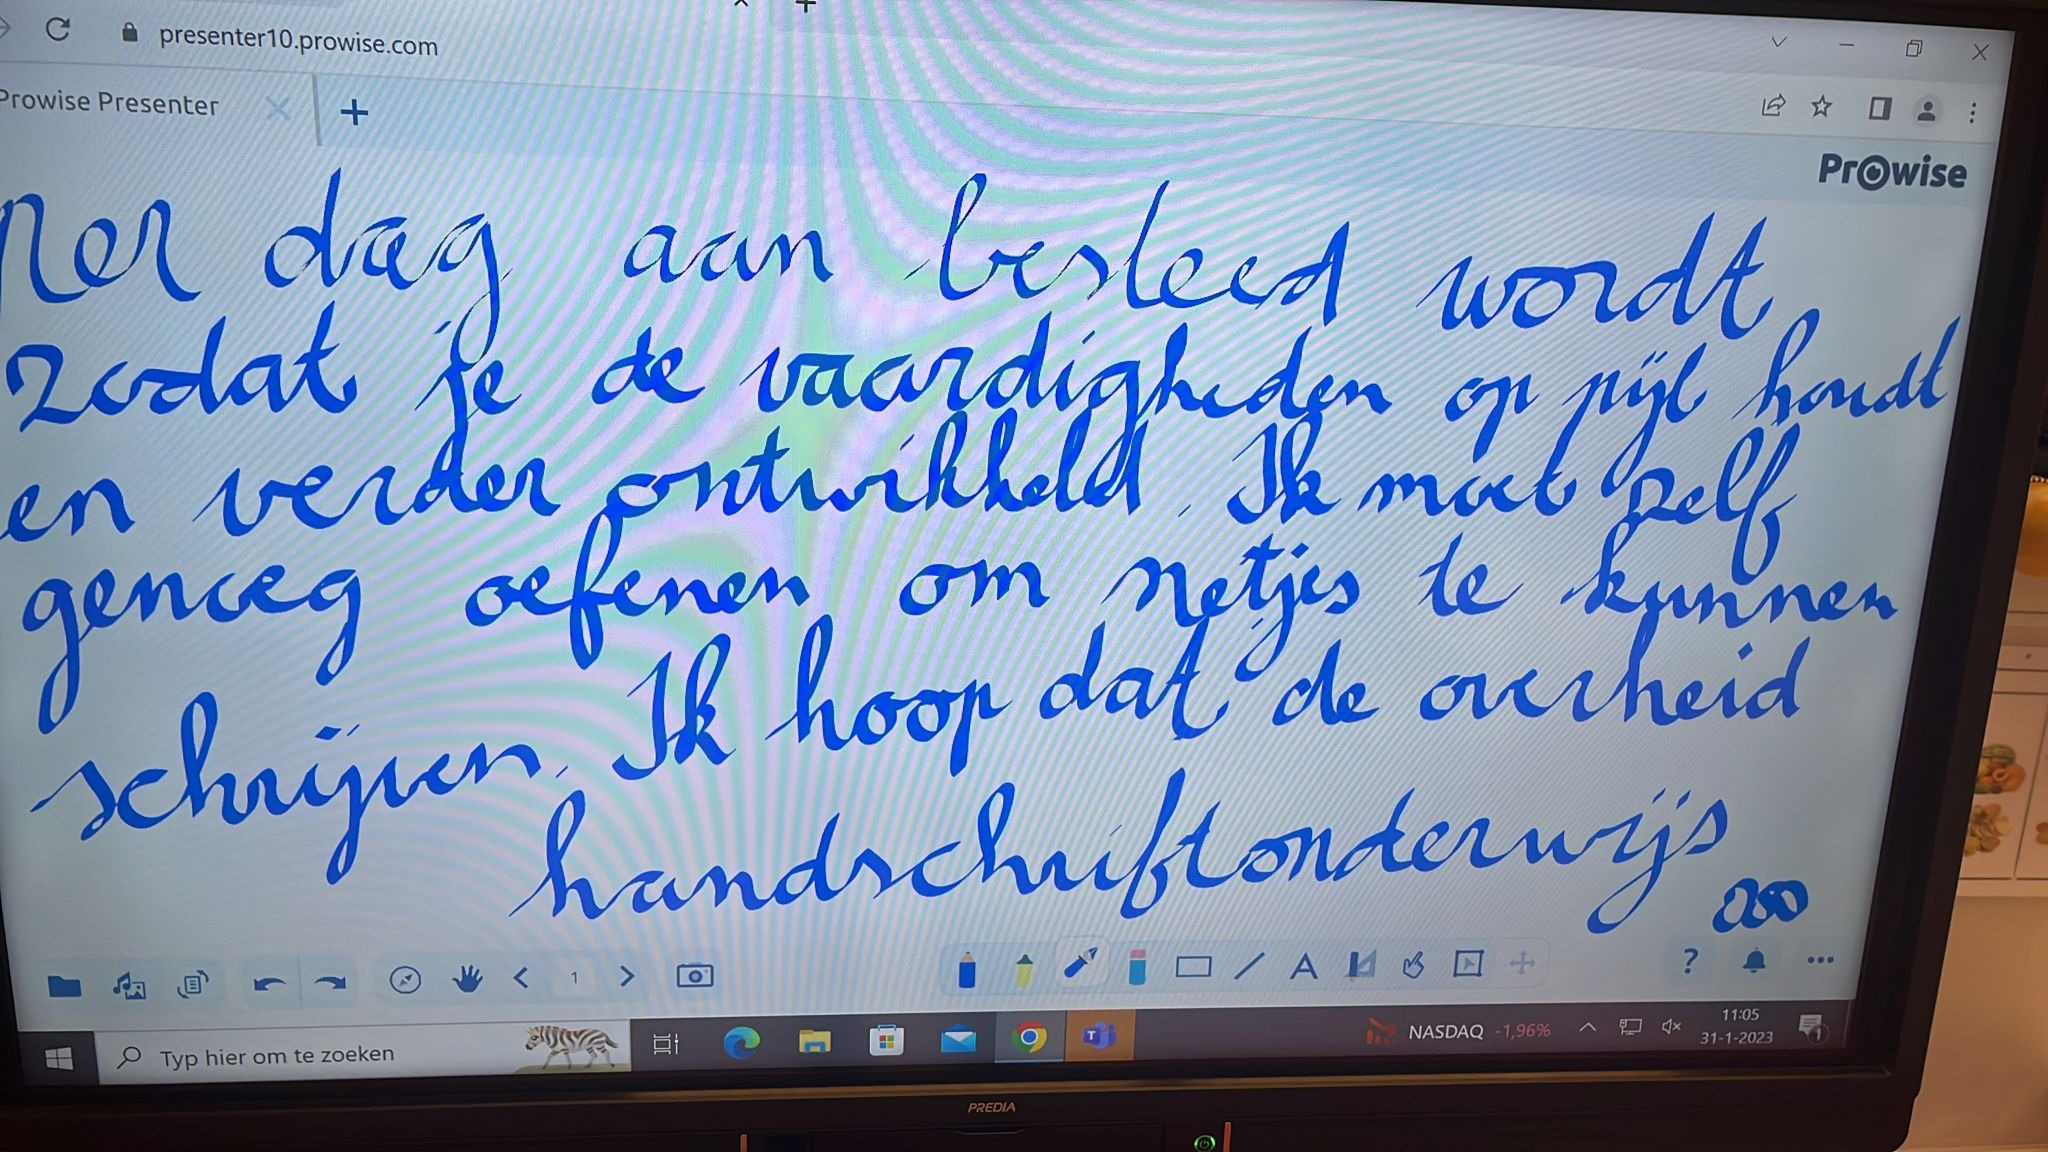 presenter10.prowise.com
Prowise Presenter
Prowise
per dag aan besteed wordt
zodat je de vaardigheden op pijl houdt
en verder ontwikkeld. Ik moet zelf
genoeg oefenen om netjes te kunnen
schrijven. Ik hoop dat de overheid
handschriftonderwijs
zoo
1
Typ hier om te zoeken
NASDAQ -1,96%
11:05
31-1-2023
1
PREDIA